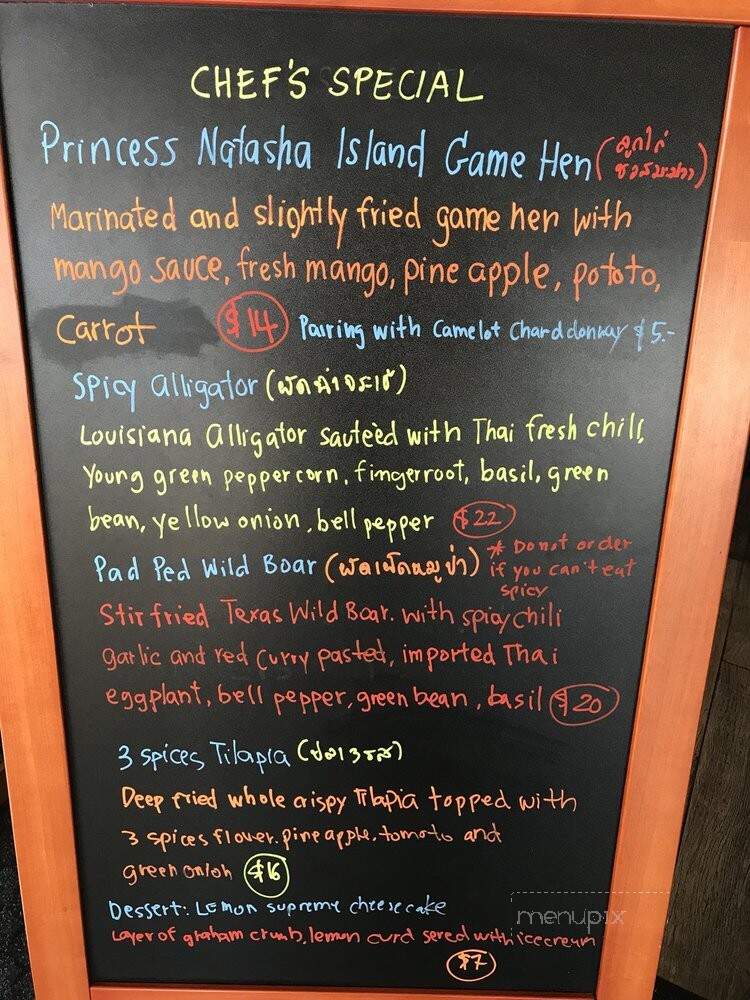 CHEF'S SPECIAL
Princess Natasha Island Game Hen (ลูกไก่
ซอสมะม่วง)
Marinated and slightly fried game hen with
mango sauce, fresh mango, pine apple, pototo,
Carrot $14 Pairing with Camelot Charddonnay $5.-
Spicy Alligator (ผัดฉ่าจระเข้)
Louisiana Alligator sauteèd with Thai fresh chili,
Young green peppercorn, fimgerroot, basil, green
bean, yellow onion, bell pepper $22
Pad Ped Wild Boar (ผัดเผ็ดหมูป่า) * Do not order
if you can't eat
spicy
Stir fried Texas Wild Boar. with spicy chili
garlic and red curry pasted, imported Thai
eggplant, bell pepper, green bean, basil $20
3 spices Tilapia (ปลา3รส)
Deep fried whole crispy Tilapia topped with
3 spices flover. pineapple, tomato and
green onion $16
Dessert: Lemon supreme cheesecake
Layer of graham crumb, lemon curd sered with icecream
$7
menupix